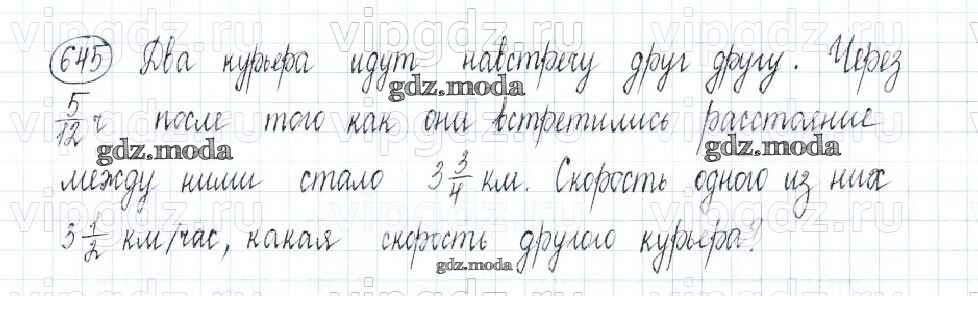 645 Два курьера идут навстречу друг другу. Через
gdz.moda
5/12 ч после того как они встретились расстояние
gdz.moda
между ними стало 3 3/4 км. Скорость одного из них
3 1/2 км/час, какая скорость другого курьера?
gdz.moda